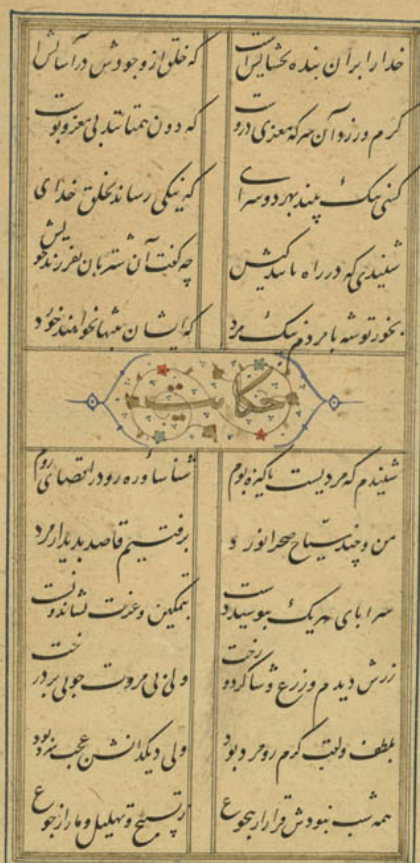 خدا را بران بنده بخشایش است که خلق از وجودش در آسایش
کرم ورزد آن سر که مغزی دروست که دون همتانند بی مغز و پوست
کسی نیک بیند بهر دو سرای که نیکی رساند بخلق خدای
شنیدی که در راه با چه گفت آن شتربان بفرزند خویش
بخور توشه با مردم نیک مرد که ایشان بتنها نخواهند خورد
حکایت
شنیدم که مردیست پاکیزه بوم شناسا و ره رو در اقصای روم
من و چند سیاح صحرا نورد برفتیم قاصد بدیدار مرد
سرا پای هر یک ببوسید دست بتمکین و عزت نشاند و نشست
زرش دیدم و زرع و شاکرد و رخت ولی بی مروت چو بی بر درخت
بلطف و لبق کرم رو مرد بود ولی دیکدانش عجب سرد بود
همه شب نبودش قرار از هجوع ز تسبیح و تهلیل و ما را ز جوع